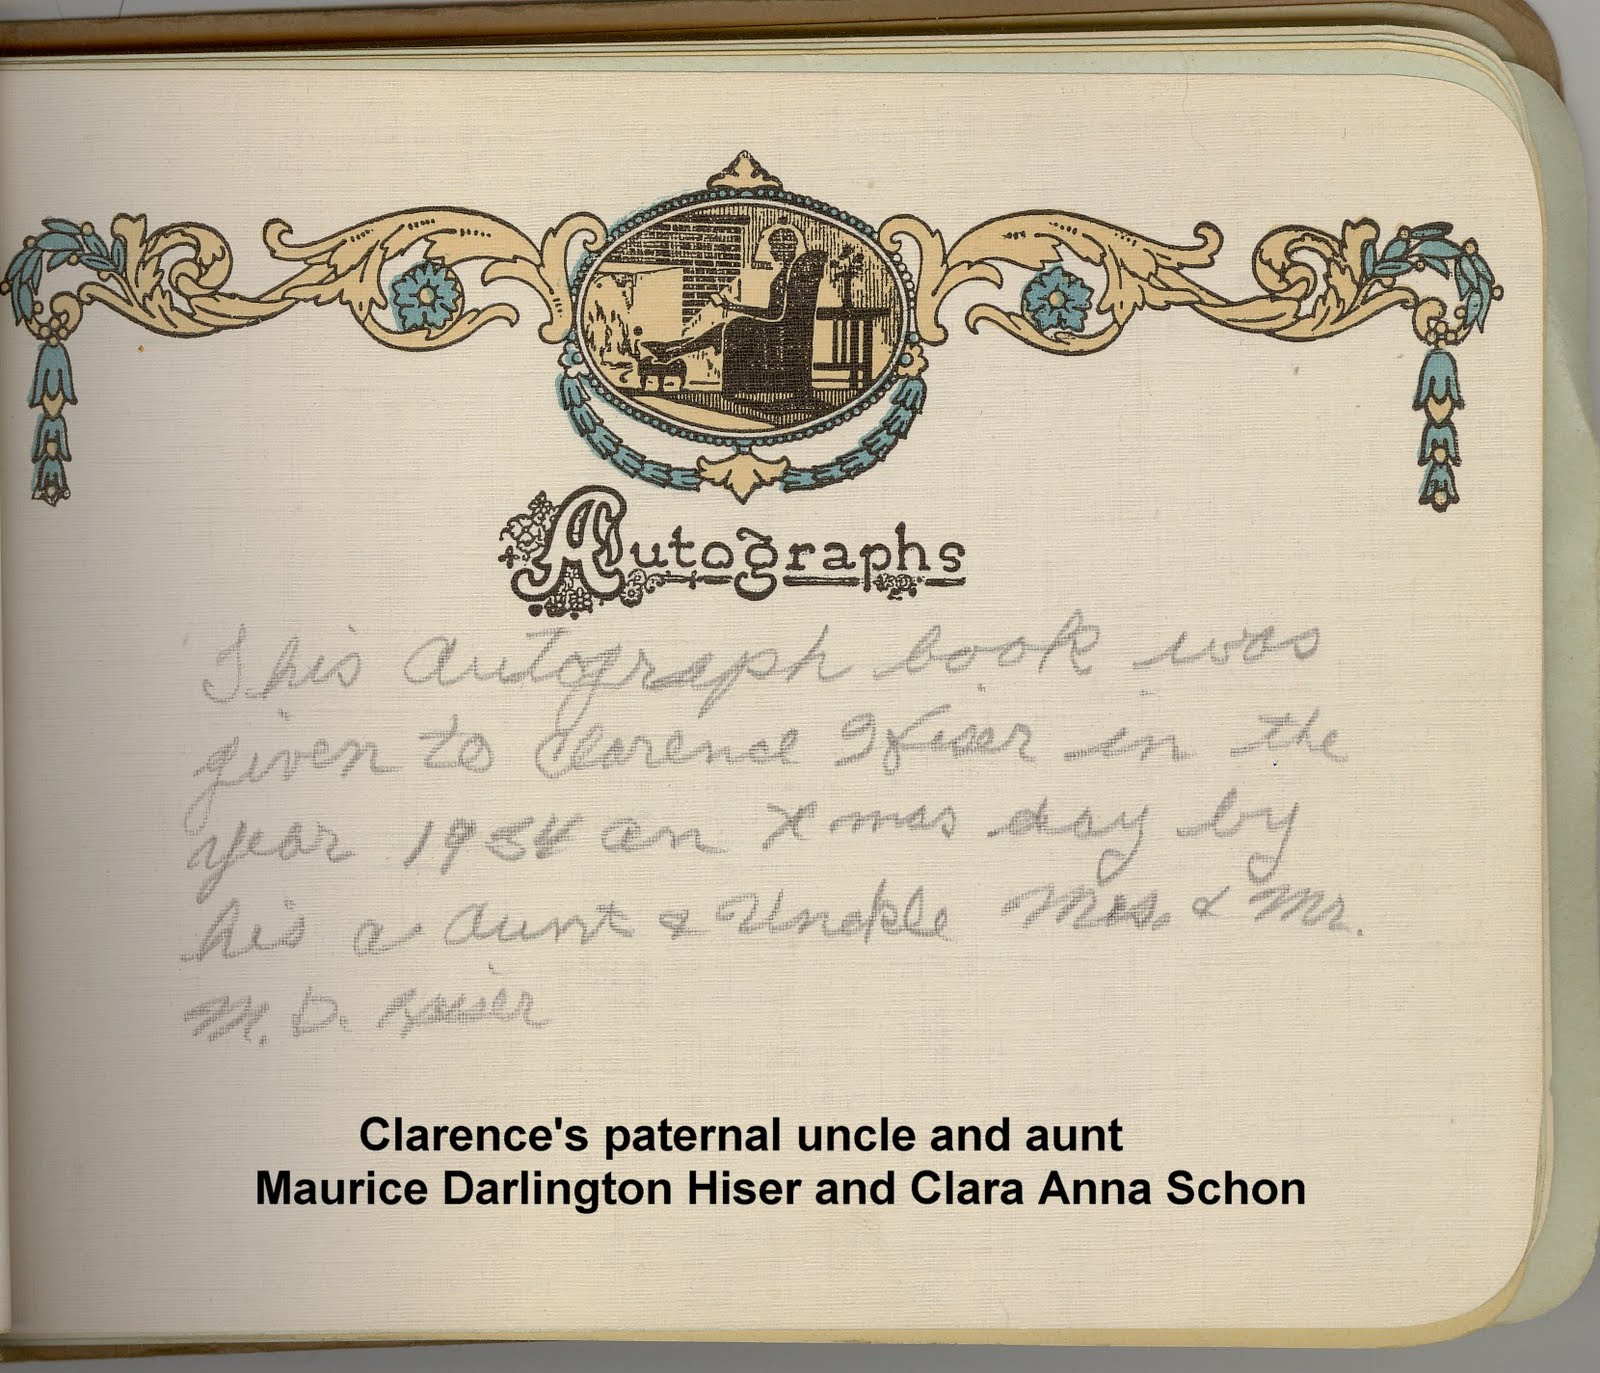 Autographs
This Autograph book was
given to Clarence Hiser in the
year 1934 on Xmas day by
his a Aunt & Unckle Mrs. & Mr.
M. D. Hiser
Clarence's paternal uncle and aunt
Maurice Darlington Hiser and Clara Anna Schon